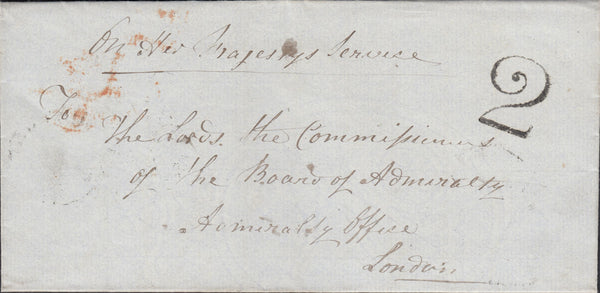 On Her Majestys Service
2
To
The Lords the Commissioners
of the Board of Admiralty
Admiralty Office
London